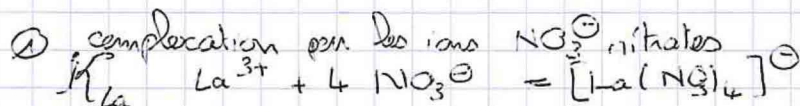 ① complexation par les ions NO₃⊖ nitrates
K_La La³⁺ + 4 NO₃⊖ = [La(NO₃)₄]⊖